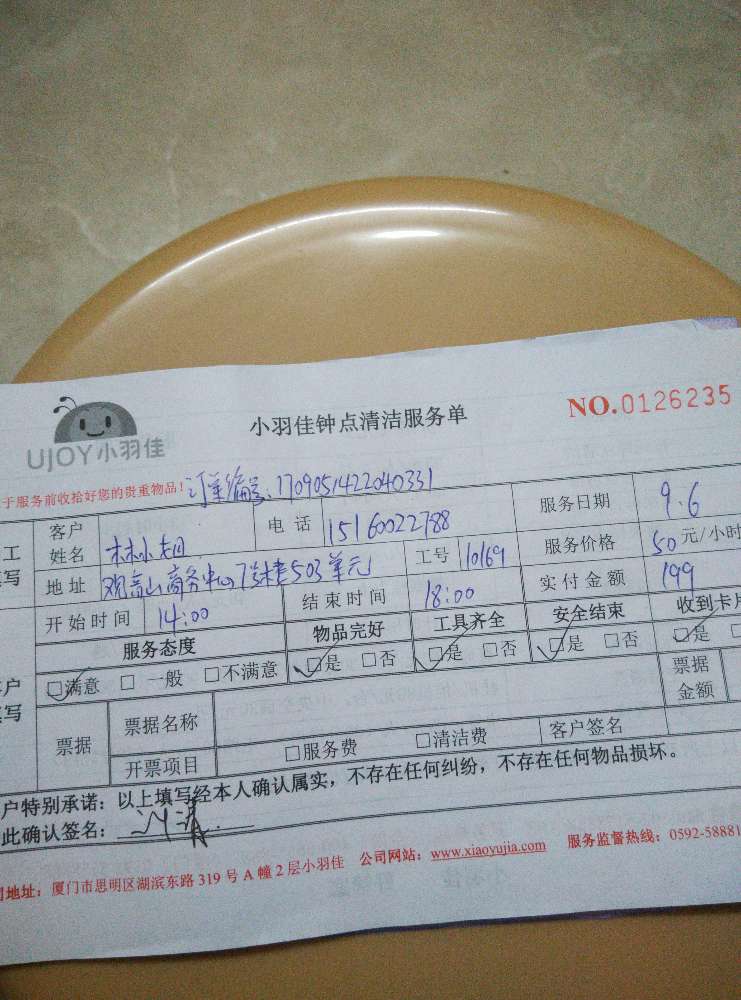 UJOY小羽佳
小羽佳钟点清洁服务单
NO.0126235
于服务前收拾好您的贵重物品! 订单编号: 1709051422040331
工 客户姓名 林小姐 电话 15160022788 服务日期 9.6
写 地址 观音山商务中心7号楼503单元 工号 10169 服务价格 50元/小时
开始时间 14:00 结束时间 18:00 实付金额 199
服务态度 物品完好 工具齐全 安全结束 收到卡片
户 □满意 □一般 □不满意 □是 □否 □是 □否 □是 □否 □是
写 票据 票据名称 票据金额
开票项目 □服务费 □清洁费 客户签名
户特别承诺: 以上填写经本人确认属实,不存在任何纠纷,不存在任何物品损坏。
此确认签名:
地址: 厦门市思明区湖滨东路319号A幢2层小羽佳 公司网站: www.xiaoyujia.com 服务监督热线: 0592-58881